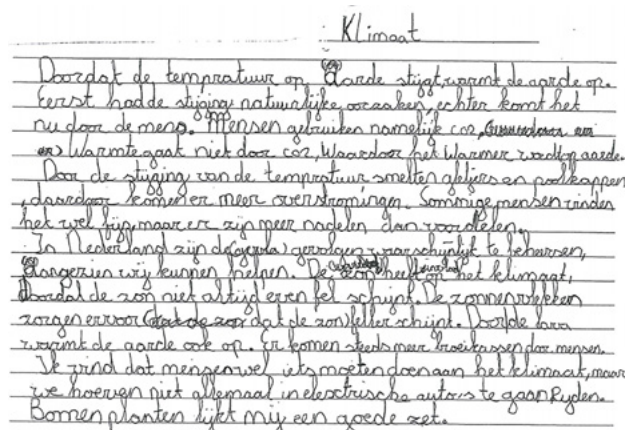 Klimaat
Doordat de tempratuur op aarde stijgt, warmt de aarde op.
Eerst had de stijging natuurlijke oorzaken, echter komt het
nu door de mens. Mensen gebruiken namelijk co2,
Warmte gaat niet door co2, Waardoor het Warmer wordt op aarde.
Door de stijging van de tempratuur smelten gletjers en poolkappen
, daardoor komen er meer overstromingen. Sommige mensen vinden
het wel fijn, maar er zijn meer nadelen dan voordelen.
In Nederland zijn de gevolgen waarschijnlijk te beheersen,
aangezien wij kunnen helpen. De zon heeft invloed op het klimaat,
Doordat de zon niet altijd even fel schijnt. De zonnevlekken
zorgen ervoor (dat de zon dat de zon) feller schijnt. Door de lava
warmt de aarde ook op. Er komen steeds meer broeikassen door mensen.
Ik vind dat mensen wel iets moeten doen aan het klimaat, maar
we hoeven niet allemaal in electrische auto's te gaan Rijden.
Bomen planten lijkt mij een goede zet.